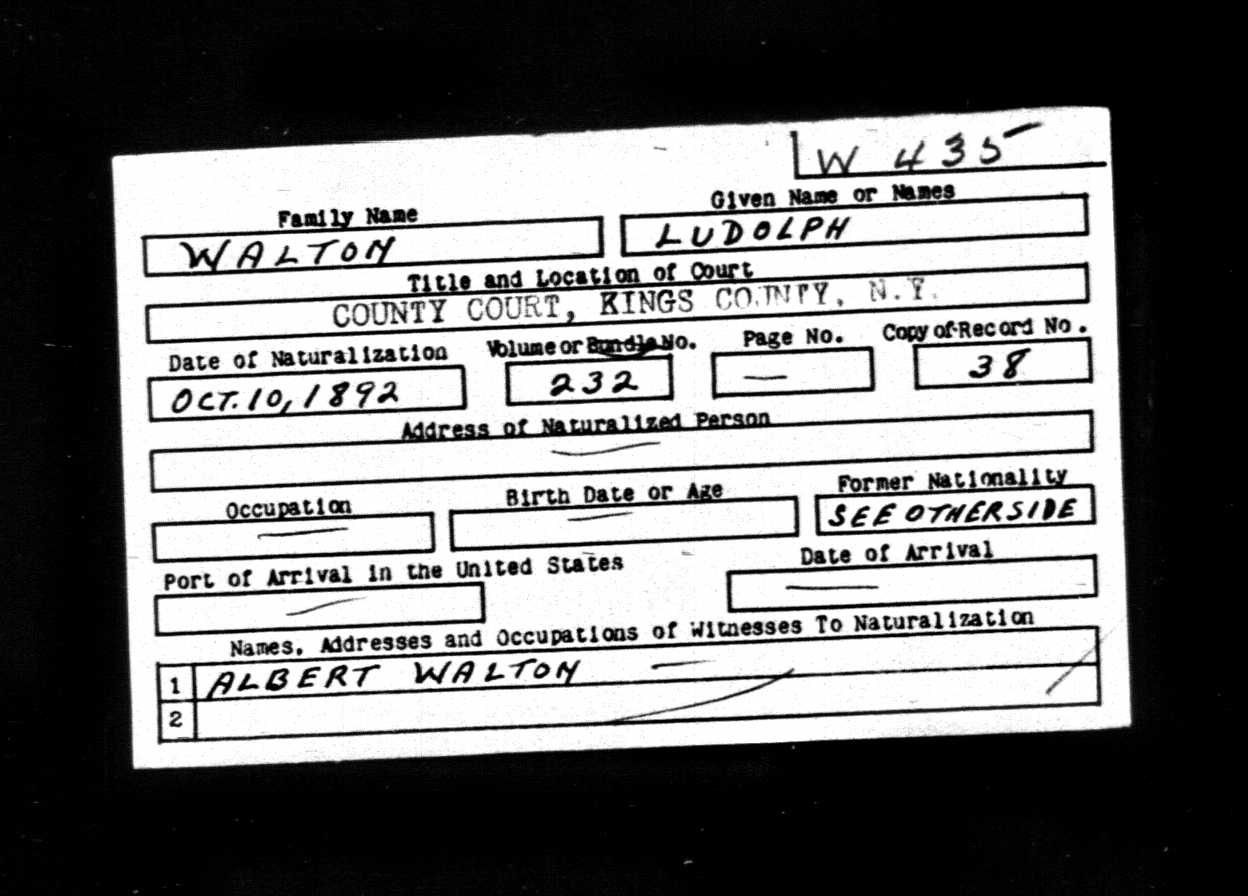 W 435
Family Name Given Name or Names
WALTON LUDOLPH
Title and Location of Court
COUNTY COURT, KINGS COUNTY, N.Y.
Date of Naturalization Volume or Bundle No. Page No. Copy of Record No.
OCT. 10, 1892 232 — 38
Address of Naturalized Person
—
Occupation Birth Date or Age Former Nationality
— — SEE OTHERSIDE
Port of Arrival in the United States Date of Arrival
— —
Names, Addresses and Occupations of Witnesses To Naturalization
1 ALBERT WALTON —
2